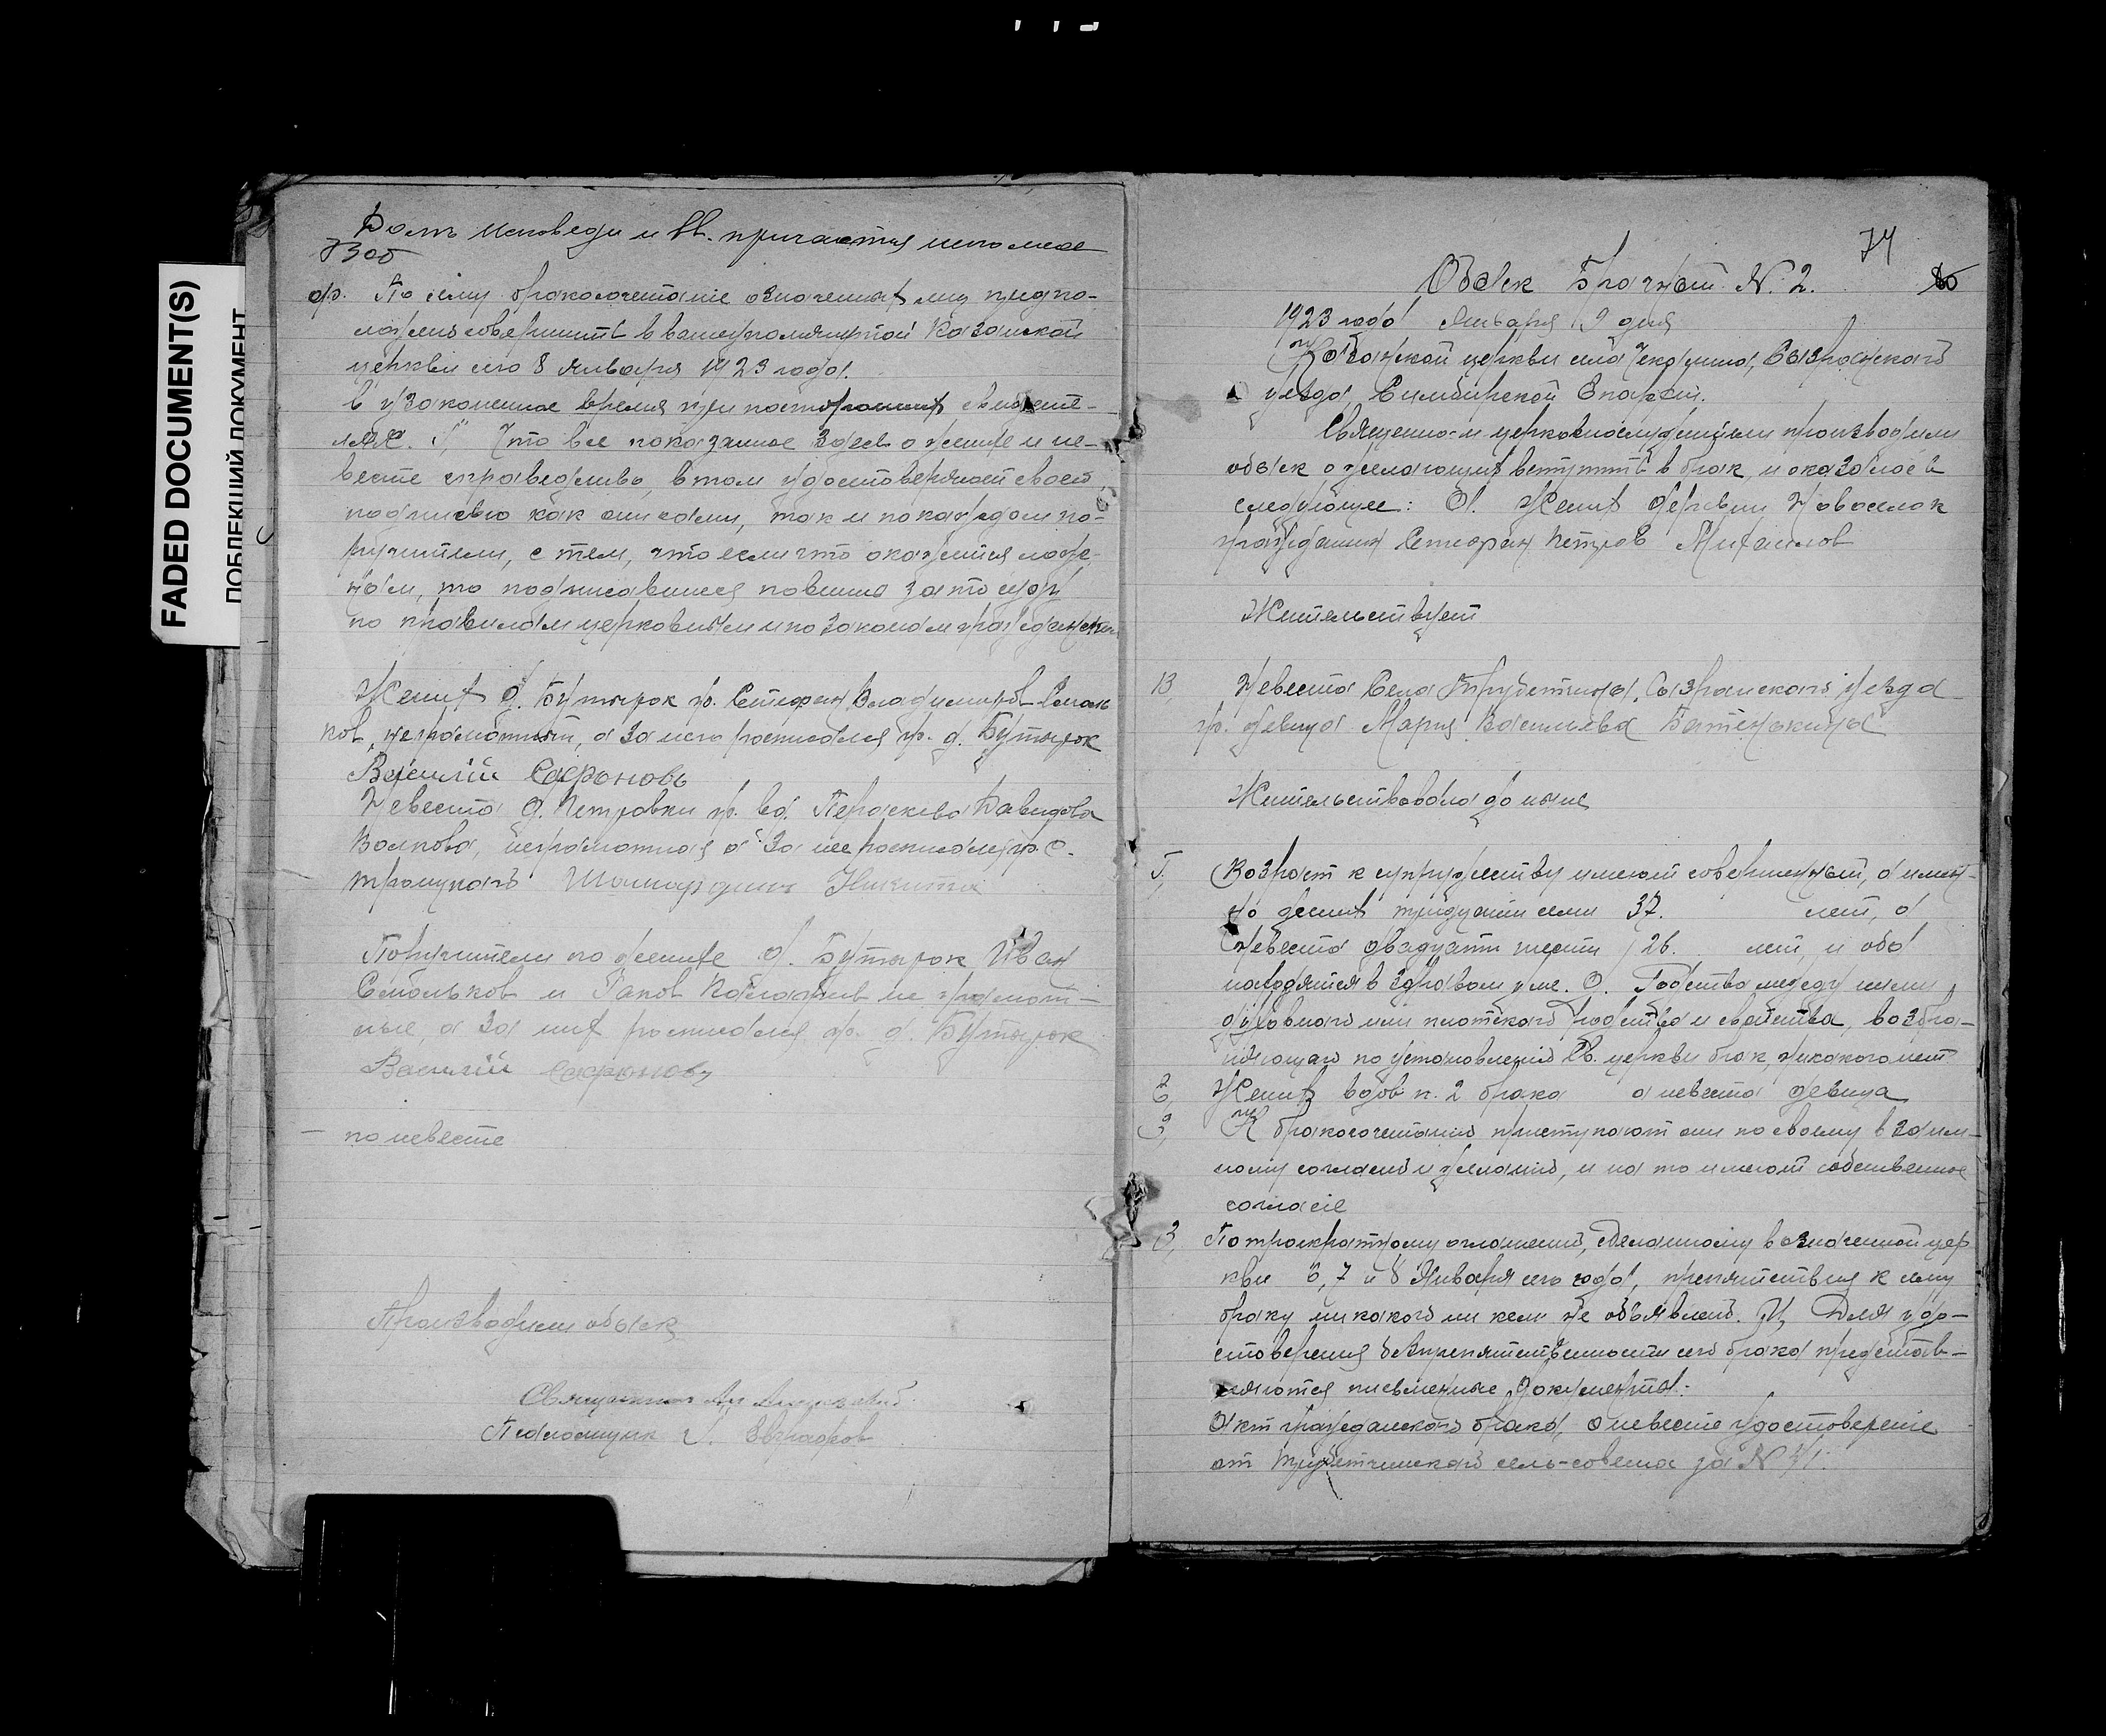 FADED DOCUMENT(S)
ПОБЛЕКШИЙ ДОКУМЕНТ
Долгъ исповеди и Св. причастия исполнен
73 об
ф. По сему бракосочетание означенных лиц предпо-
ложено совершить в вышеупомянутой Казанской
церкви сего 8 января 1923 года.
в узаконенное время при посторонних свидете-
лях. Г, Что все показанное здесь о женихе и не-
весте справедливо, в том удостоверяют своею
подписью как они сами, так и по каждом по-
ручители, с тем, что если что окажется лож-
ным, то подписавшиеся повинны за то суду
по правилам церковным и по законам гражданским
Жених д. Бутырок гр. Стефан Владимиров Смоль
ков, неграмотный, а за него росписался гр. д. Бутырок
Василий Сафроновъ
Невеста д. Петровки гр. вд. Параскева Давидова
Волкова, неграмотная а за нее росписался гр. с.
Никита
Поручители по женихе д. Бутырок Иван
Смольков и Яков неграмот-
ные, а за них росписался гр. д. Бутырок
Василий Сафроновъ
— по невесте
Производили обыск
Священник
Псаломщик
74
Обыск Брачный N. 2.
1923 года Января 9 дня
Казанской церкви села Сызранского
уезда, Симбирской Епархии.
Священно-и церковнослужители производили
обыск о желающих вступить в брак, и оказалось
следующее: А. Жених деревни Новоселок
гражданин Стефан Петров Михайлов
Жительствует
В, Невеста Села Трубетчины, Сызранского уезда
гр. девица Мария Васильева Батенькина
Жительствовала до ныне
Г, Возраст к супружеству имеют совершенный, а имен-
но жених тридцати семи 37. лет, а
невеста двадцати шести 26. лет, и оба
находятся в здравом уме. Д. Родства между ними,
духовного или плотского родства и свойства, возбра-
няющаго по установлению Св. церкви брак, никакого нет
Е, Жених вдов п. 2 брака а невеста девица
К бракосочетанию приступают они по своему взаим-
ному согласию и желанию, и на то имеют собственное
согласие
З, По троекратному оглашению, сделанному в означенной цер
кви 6, 7 и 8 Января сего года, препятствия к сему
браку никакого ни кем не объявлено. И, Для удо-
стоверения безпрепятственности сего брака представ-
ляются письменные документы:
Акт гражданского брака, о невесте удостоверение
от Трубетчинского сель-совета за N 71.